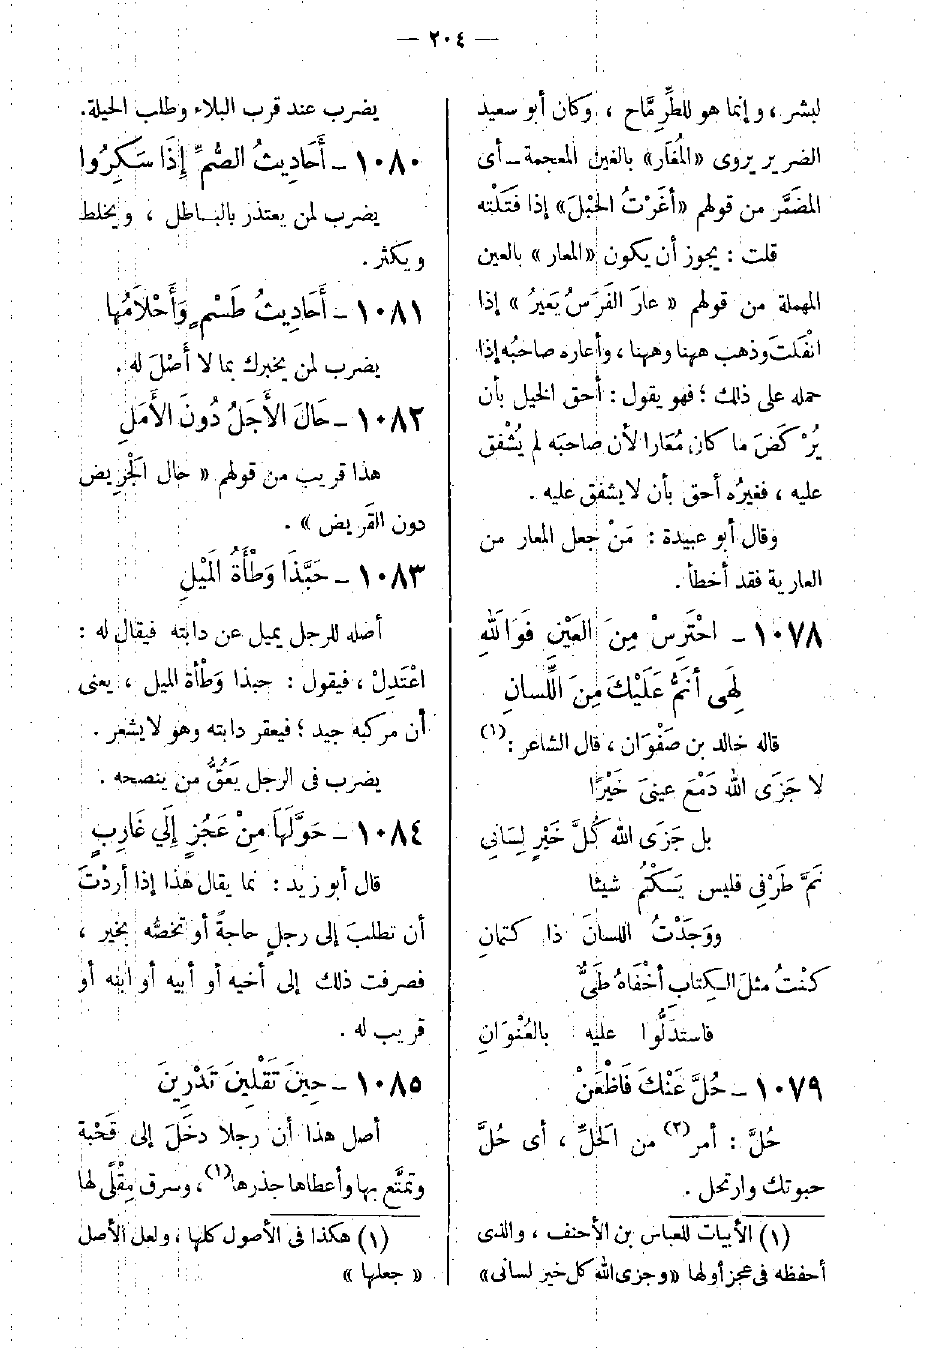 — ٢٠٤ —
لبشر ، وإنما هو للطِّرِمَّاح ، وكان أبو سعيد
الضرير يروى «المُغَار» بالغين المعجمة ــ أى
المضَمَّر من قولهم «أغَرْتُ الحَبْلَ» إذا فَتَلْته
قلت : يجوز أن يكون «المعار» بالعين
المهملة من قولهم « عارَ الفَرَسُ يَعِيرُ » إذا
انْفَلَتَ وذهب ههنا وههنا ، وأعاره صاحبُه إذا
حمله على ذلك ؛ فهو يقول : أحق الخيل بأن
يُرْكَضَ ما كان مُعَارا لأن صاحبَه لم يُشْفق
عليه ، فغيرُه أحق بأن لا يشفق عليه .
وقال أبو عبيدة : مَنْ جعل المعار من
العارية فقد أخطأ .
١٠٧٨ ــ احْتَرِسْ مِنَ العَيْنِ فَوَاللهِ
لَهِى أنَمُّ عَلَيْكَ مِنَ اللِّسانِ
قاله خالد بن صَفْوَان ، قال الشاعر :(١)
لا جَزَى الله دَمْعَ عينىَ خَيْرًا
بل جَزَى الله كُلَّ خَيْرٍ لِسَانِى
نَمَّ طَرْفِى فليس يَكْتُم شيئا
ووَجَدْتُ اللسانَ ذا كتمانِ
كنْتُ مثلَ الكِتابِ أخْفَاهُ طَىٌّ
فاستدَلُّوا عليه بالعُنْوَانِ
١٠٧٩ ــ حُلَّ عَنْكَ فَاظْعَنْ
حُلَّ : أمر(٢) من الحَلِّ ، أى حُلَّ
حبوتك وارتحل .
(١) الأبيات للعباس بن الأحنف ، والذى
أحفظه فى عجز أولها «وجزى الله كل خير لسانى»
يضرب عند قرب البلاء وطلب الحيلة.
١٠٨٠ ــ أَحَادِيثُ الصُّمِّ إِذَا سَكِرُوا
يضرب لمن يعتذر بالباطل ، ويخلط
ويكثر .
١٠٨١ ــ أَحَادِيثُ طَسْمٍ وَأَحْلاَمُها
يضرب لمن يخبرك بما لا أصْلَ له .
١٠٨٢ ــ حَالَ الأَجَلُ دُونَ الأَمَلِ
هذا قريب من قولهم « حال الجَرِيض
دون القَرِيض » .
١٠٨٣ ــ حَبَّذَا وَطْأَةُ المَيْلِ
أصله للرجل يميل عن دابته فيقال له :
اعْتَدِلْ ، فيقول : حبذا وَطْأة الميل ، يعنى
أن مركبه جيد ؛ فيعقر دابته وهو لا يشعر .
يضرب فى الرجل يَعُقُّ من ينصحه .
١٠٨٤ ــ حَوَّلَهَا مِنْ عَجُزٍ إِلَي غَارِبٍ
قال أبو زيد : نما يقال هذا إذا أردْتَ
أن تطلبَ إلى رجلٍ حاجةً أو تخصُّه بخير ،
فصرفت ذلك إلى أخيه أو أبيه أو ابنه أو
قريب له .
١٠٨٥ ــ حِينَ تَقْلِينَ تَدْرِينَ
أصل هذا أن رجلا دخَلَ إلى قَحْبة
وتمتَّع بها وأعطاها جذرها(١) ، وسرق مِقْلًى لها
(١) هكذا فى الأصول كلها ، ولعل الأصل
« جعلها »